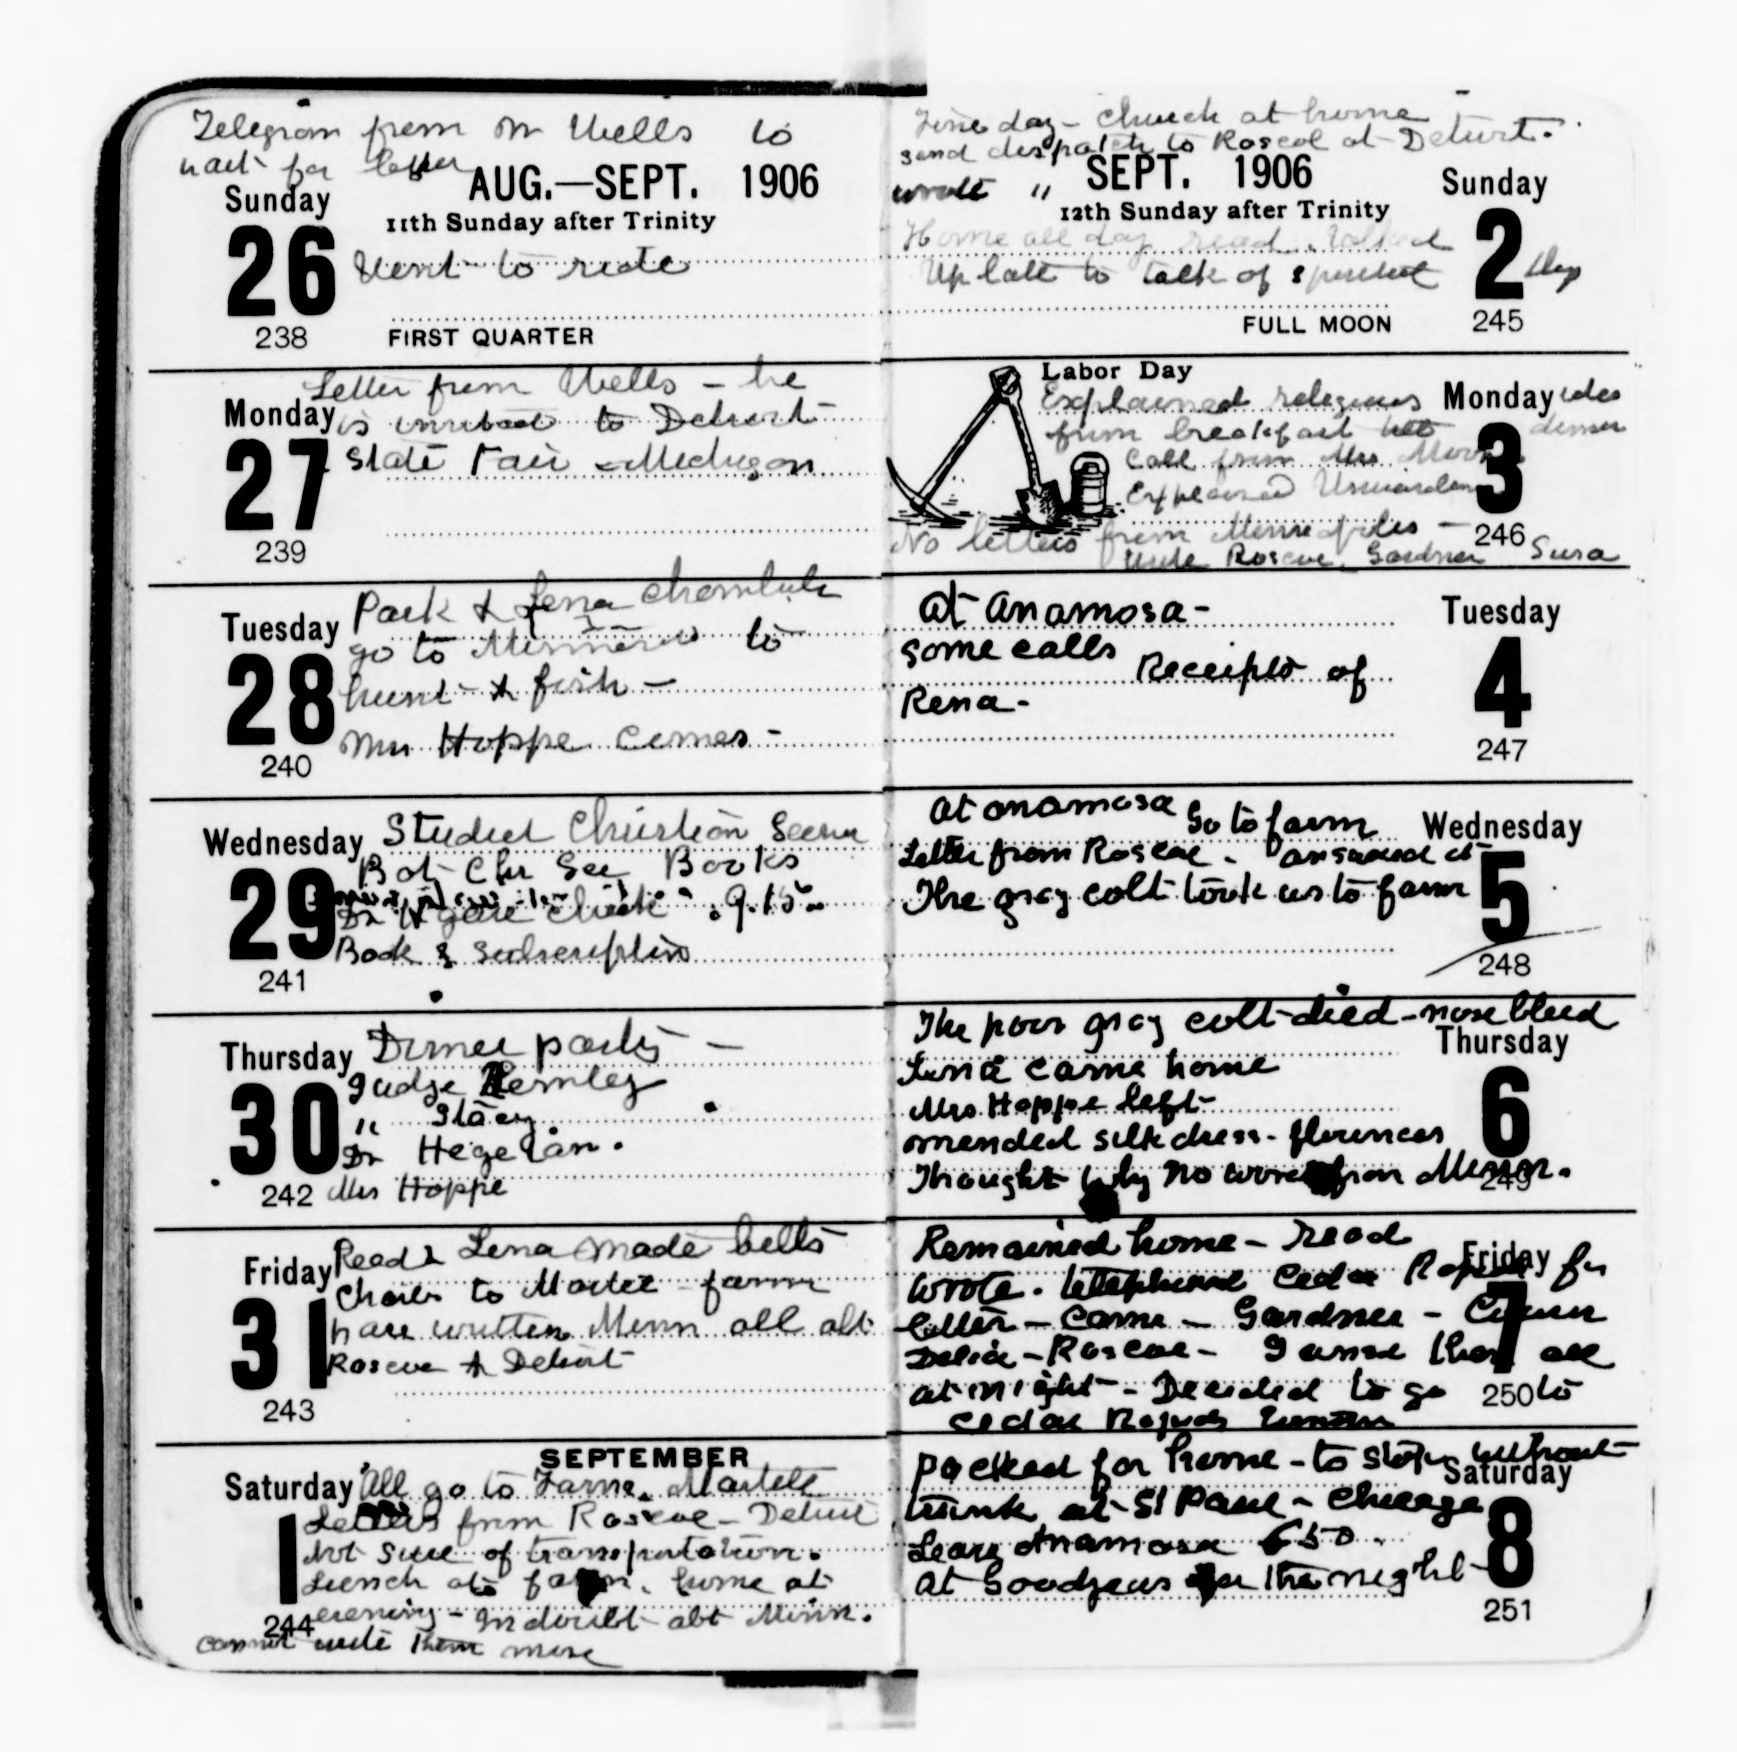 Telegram from Mr Wells to
wait for letter
AUG.—SEPT. 1906
Sunday
11th Sunday after Trinity
26
Went to ride
238
FIRST QUARTER
Letter from Wells - he
Monday
is invited to Detroit
27
State Fair - Michigan
239
Park & Lena
Tuesday
go to to
28
hunt & fish -
Mrs Hoppe comes -
240
Student Christian
Wednesday
Bot Chr Books
29
Dr gave check 9.15
Book & subscription
241
Dinner party -
Thursday
Judge
30
" Stacy
Dr
242
Mrs Hoppe
Read & Lena made bells
Friday
to farm
31
have written Minn all abt
Roscoe & Detroit
243
SEPTEMBER
Saturday
All go to Farm.
1
Letters from Roscoe - Detroit
Not sure of transportation.
Lunch at farm. home at
244
evening - In doubt abt Minn.
cannot write them more
Fine day - Church at home
send dispatch to Roscoe at Detroit.
wrote "
SEPT. 1906
Sunday
12th Sunday after Trinity
2
Home all day read talked
Up late to talk of
245
FULL MOON
Labor Day
Explained religious
Monday
ideas
from breakfast dinner
3
Call from Mrs
Explained
246
No letters from Minneapolis -
Wrote Roscoe, Gardner
At Anamosa -
Tuesday
some calls
4
Receipts of
Rena -
247
At Anamosa Go to farm
Wednesday
Letter from Roscoe - answered it
5
The gray colt took us to farm
248
The poor gray colt died - nose bleed
Thursday
Lena came home
6
Mrs Hoppe left
mended silk dress - flounces
Thought why no word from Minn.
249
Remained home - read
Friday
wrote. telephoned Cedar Rapids for
7
letter - came - Gardner -
Delia - Roscoe - I them all
at night - Decided to go to
250
Cedar Rapids
Packed for home - to stop without
Saturday
trunk at St Paul - Chicago
8
Leave Anamosa 650
At Goodyears for the night
251